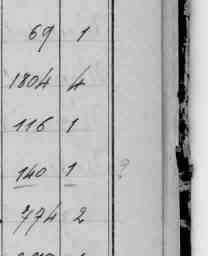 69 1
1804 4
116 1
140 1 ?
774 2